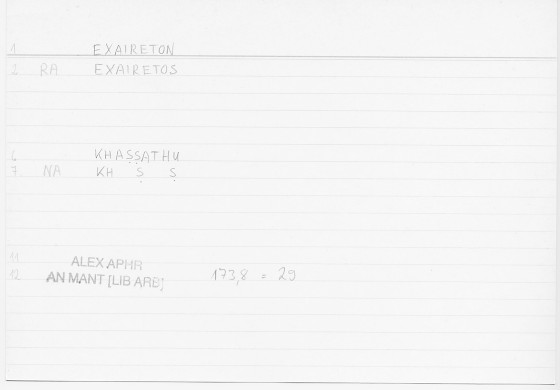 1 EXAIRETON
2 RA EXAIRETOS
6 KHAṢṢATHU
7 NA KH Ṣ Ṣ
11 ALEX APHR
12 AN MANT [LIB ARB] 173,8 = 29